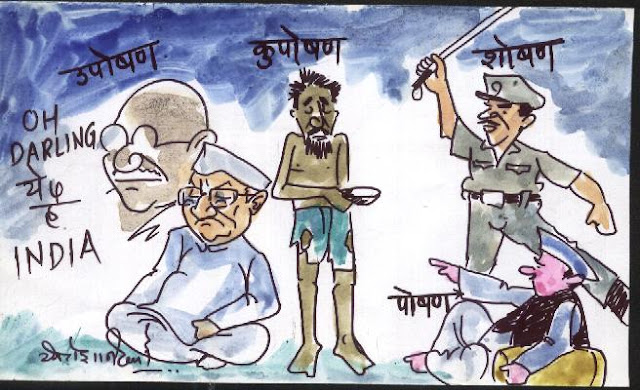 उपोषण
कुपोषण
शोषण
OH
DARLING
ये
है
INDIA
पोषण